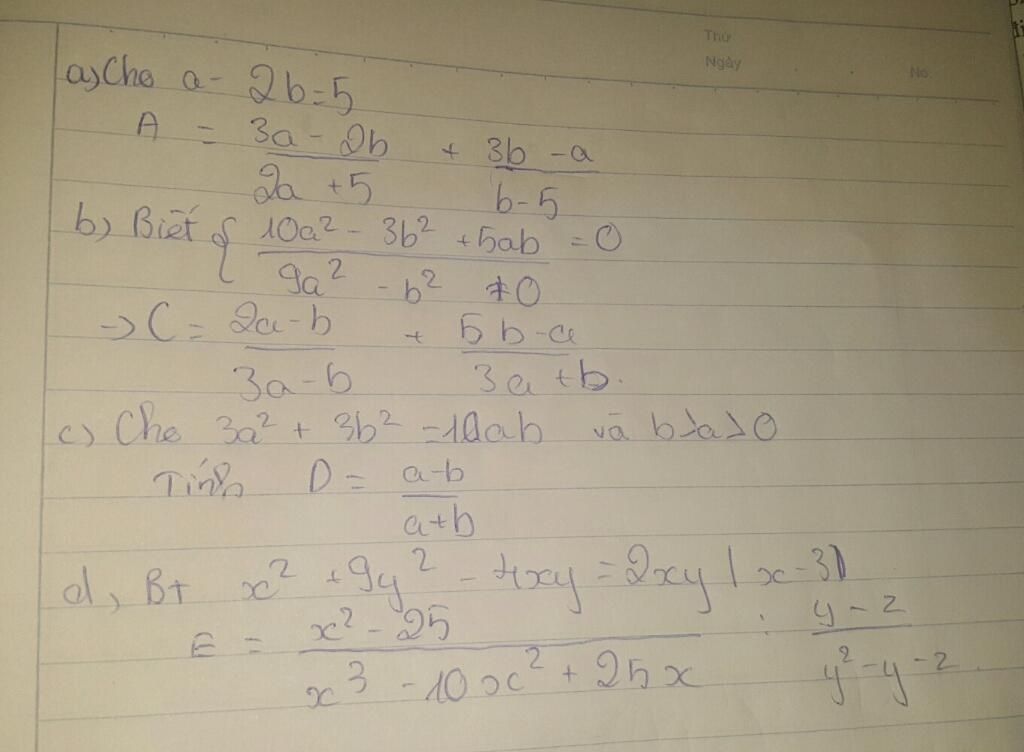 Thứ
Ngày
No.
a) Cho a - 2b = 5
A = \frac{3a - 2b}{2a + 5} + \frac{3b - a}{b - 5}
b) Biết { \frac{10a² - 3b² + 5ab = 0}{9a² - b² ≠ 0}
→ C = \frac{2a - b}{3a - b} + \frac{5b - a}{3a + b}.
c) Cho 3a² + 3b² = 10ab và b > a > 0
Tính D = \frac{a - b}{a + b}
d, BT x² + 9y² - 4xy = 2xy | x - 3|
E = \frac{x² - 25}{x³ - 10x² + 25x} : \frac{y - 2}{y² - y - 2}.